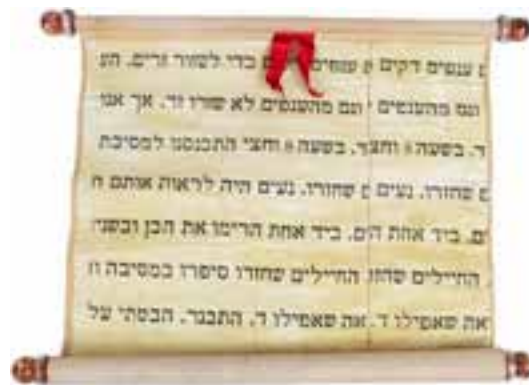 ם ענפים דקים ם ענפים כדי לשזור זרים. הע
וגם מהענפים וגם מהענפים לא שזרו זר. אך אנו
ד. בשעה 8 וחצי. בשעה 8 וחצי התכנסנו למסיבת
ם שחזרו. נעים ם שחזרו. נעים היה לראות אותם ח
ים. ביד אחת הים. ביד אחת הרימו את הבן ובשני
החיילים שהחז החיילים שחזרו סיפרו במסיבה ח
אה שאפילו ד. אה שאפילו ד. התבגר. הבטתי על